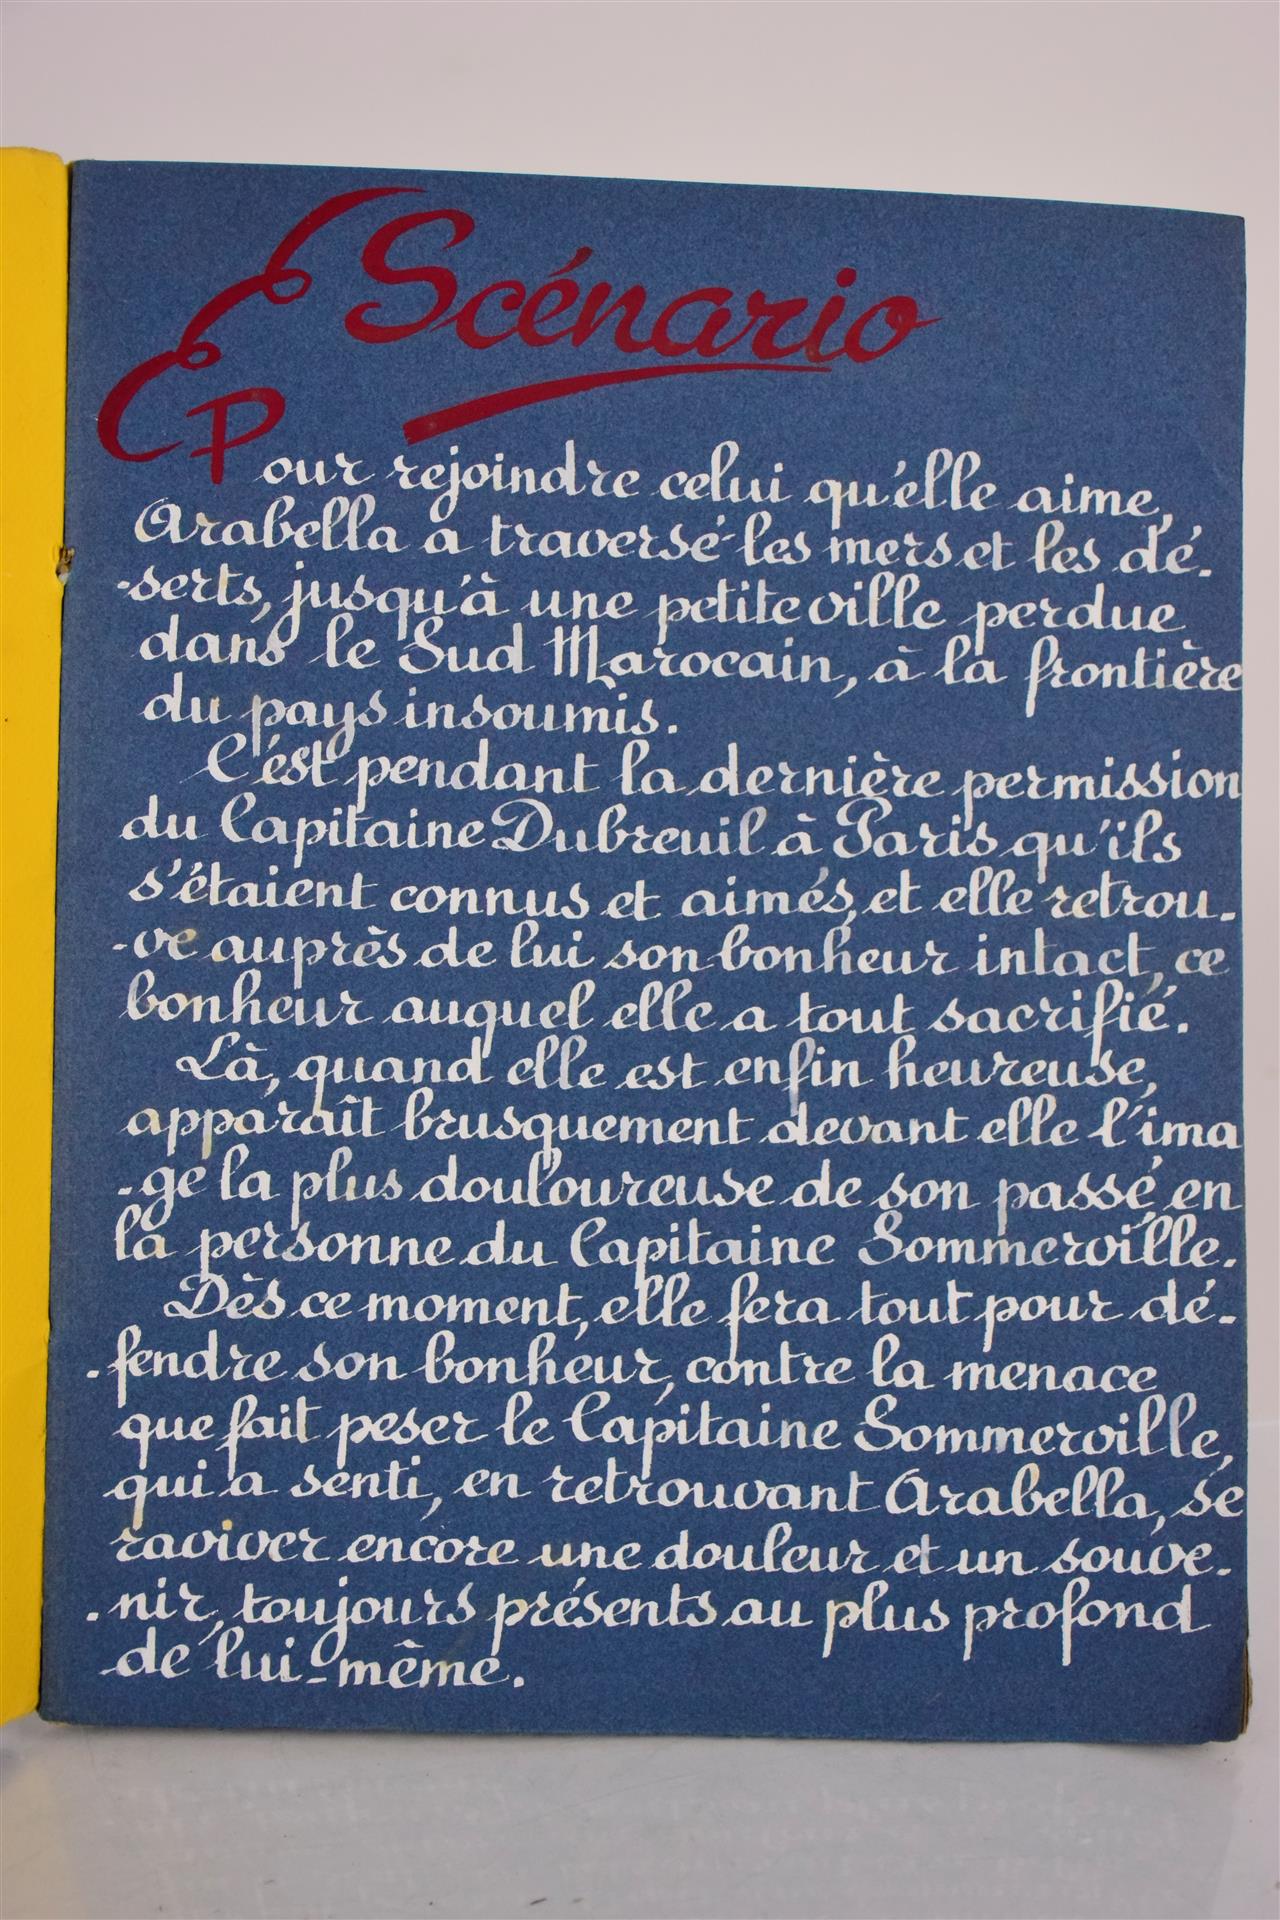 Scénario
Pour rejoindre celui qu'elle aime,
Arabella a traversé les mers et les dé-
-serts, jusqu'à une petite ville perdue
dans le Sud Marocain, à la frontière
du pays insoumis.
C'est pendant la dernière permission
du Capitaine Dubreuil à Paris qu'ils
s'étaient connus et aimés, et elle retrou-
-ve auprès de lui son bonheur intact, ce
bonheur auquel elle a tout sacrifié.
Là, quand elle est enfin heureuse,
apparaît brusquement devant elle l'ima
-ge la plus douloureuse de son passé, en
la personne du Capitaine Sommerville.
Dès ce moment, elle fera tout pour dé-
-fendre son bonheur, contre la menace
que fait peser le Capitaine Sommerville,
qui a senti, en retrouvant Arabella, se
raviver encore une douleur et un souve-
-nir, toujours présents au plus profond
de lui-même.